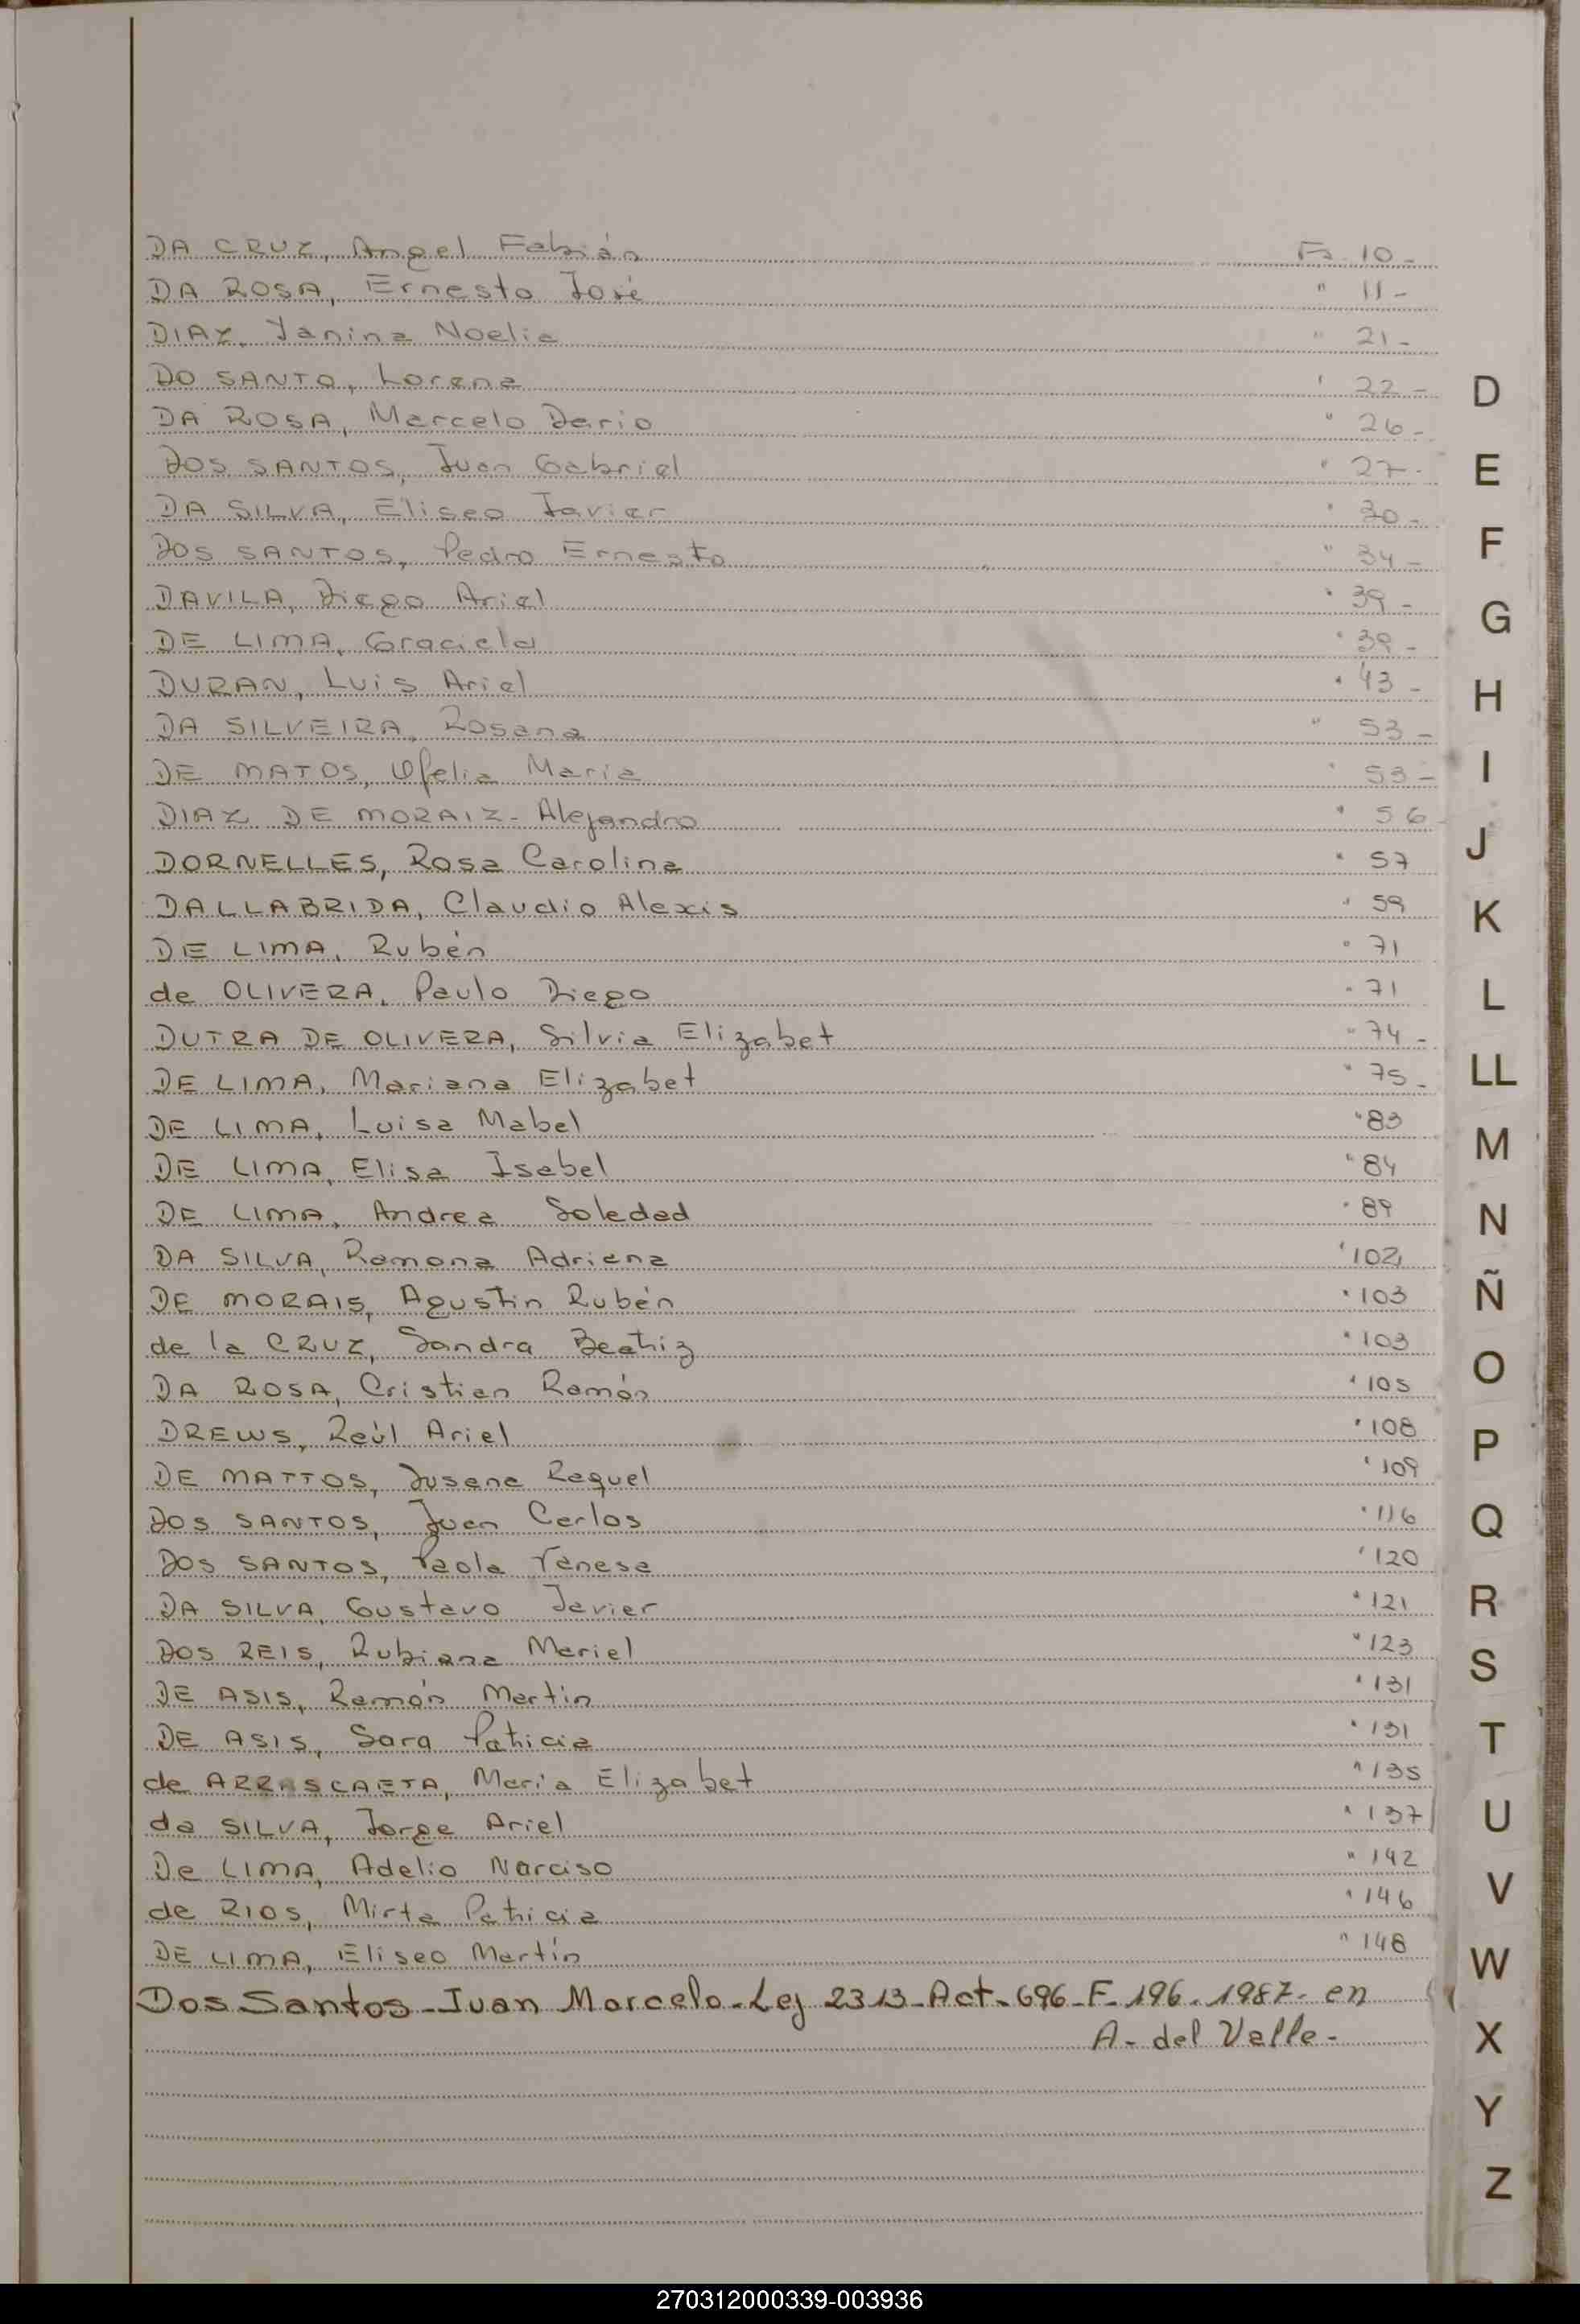 DA CRUZ, Angel Fabián Fo. 10 -
DA ROSA, Ernesto José " 11 -
DIAZ, Yanina Noelia " 21 -
DO SANTO, Lorena " 22 -
DA ROSA, Marcelo Dario " 26 -
DOS SANTOS, Juan Gabriel " 27 -
DA SILVA, Eliseo Javier " 30 -
DOS SANTOS, Pedro Ernesto " 34 -
DAVILA, Diego Ariel " 39 -
DE LIMA, Graciela " 39 -
DURAN, Luis Ariel " 43 -
DA SILVEIRA, Rosana " 53 -
DE MATOS, Ofelia Maria " 53 -
DIAZ DE MORAIZ - Alejandro " 56 -
DORNELLES, Rosa Carolina " 57
DALLABRIDA, Claudio Alexis " 59
DE LIMA, Rubén " 71
de OLIVERA, Paulo Diego " 71
DUTRA DE OLIVERA, Silvia Elizabet " 74 -
DE LIMA, Mariana Elizabet " 75 -
DE LIMA, Luisa Mabel " 83
DE LIMA, Elisa Isabel " 84
DE LIMA, Andrea Soledad " 89
DA SILVA, Ramona Adriana " 102
DE MORAIS, Agustin Rubén " 103
de la CRUZ, Sandra Beatriz " 103
DA ROSA, Cristian Ramón " 105
DREWS, Raúl Ariel " 108
DE MATTOS, Susana Raquel " 109
DOS SANTOS, Juan Carlos " 116
DOS SANTOS, Paola Vanesa " 120
DA SILVA, Gustavo Javier " 121
DOS REIS, Rubiana Mariel " 123
DE ASIS, Ramón Martin " 131
DE ASIS, Sara Patricia " 131
de ARRASCAETA, María Elizabet " 135
da SILVA, Jorge Ariel " 137
De LIMA, Adelio Narciso " 142
de RIOS, Mirta Patricia " 146
DE LIMA, Eliseo Martín " 148
Dos Santos - Juan Marcelo - Ley 2313 - Act - 696 - F - 196 - 1987 - en
A - del Valle -
D
E
F
G
H
I
J
K
L
LL
M
N
Ñ
O
P
Q
R
S
T
U
V
W
X
Y
Z
270312000339-003936